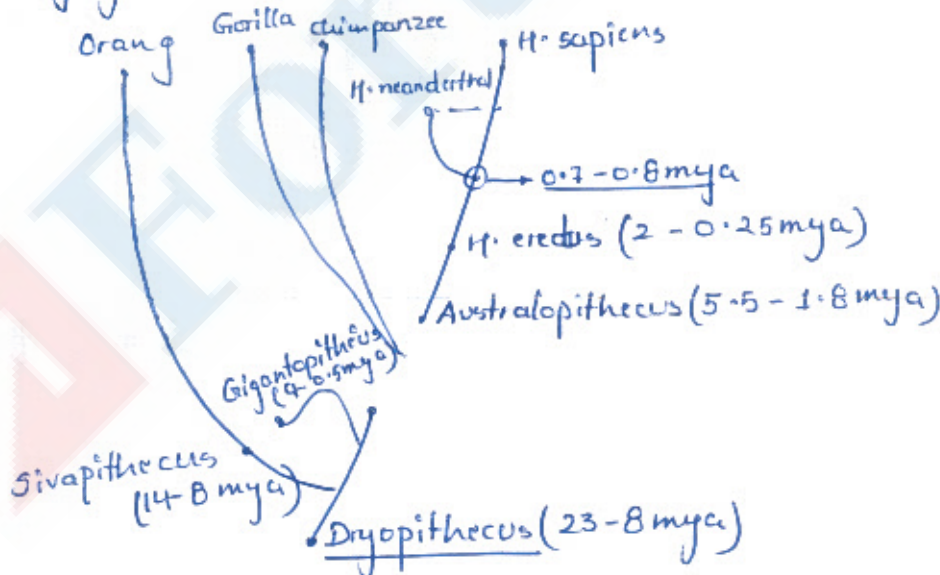 Orang
Gorilla
chimpanzee
H. sapiens
H. neanderthal
0.7 - 0.8 mya
H. erectus (2 - 0.25 mya)
Australopithecus (5.5 - 1.8 mya)
Gigantopithecus
Sivapithecus
(14-8 mya)
Dryopithecus (23-8 mya)